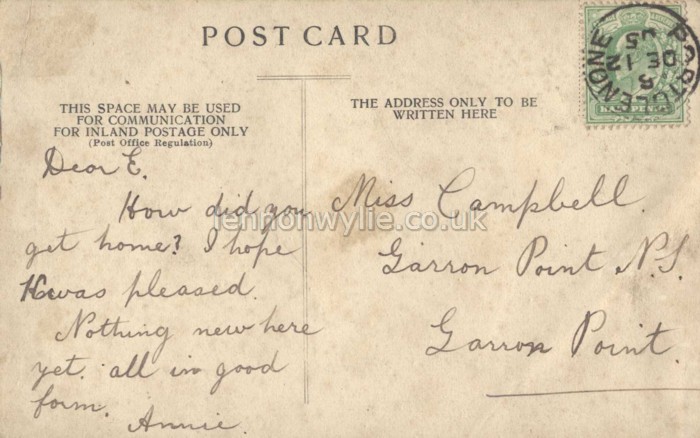 POST CARD
THIS SPACE MAY BE USED
FOR COMMUNICATION
FOR INLAND POSTAGE ONLY
(Post Office Regulation)
THE ADDRESS ONLY TO BE
WRITTEN HERE
PORTGLENONE
5
DE 12
05
HALFPENNY
Dear E.
How did you
get home? I hope
K was pleased.
Nothing new here
yet. all in good
form.
Annie.
Miss Campbell.
Garron Point N.S.
Garron Point.
lennonwylie.co.uk